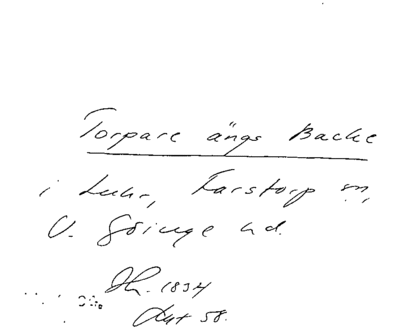 Torpare ängs Backe
i Luhr, Farstorp sn,
V. Göinge hd.
Dh. 1834
Akt 58.